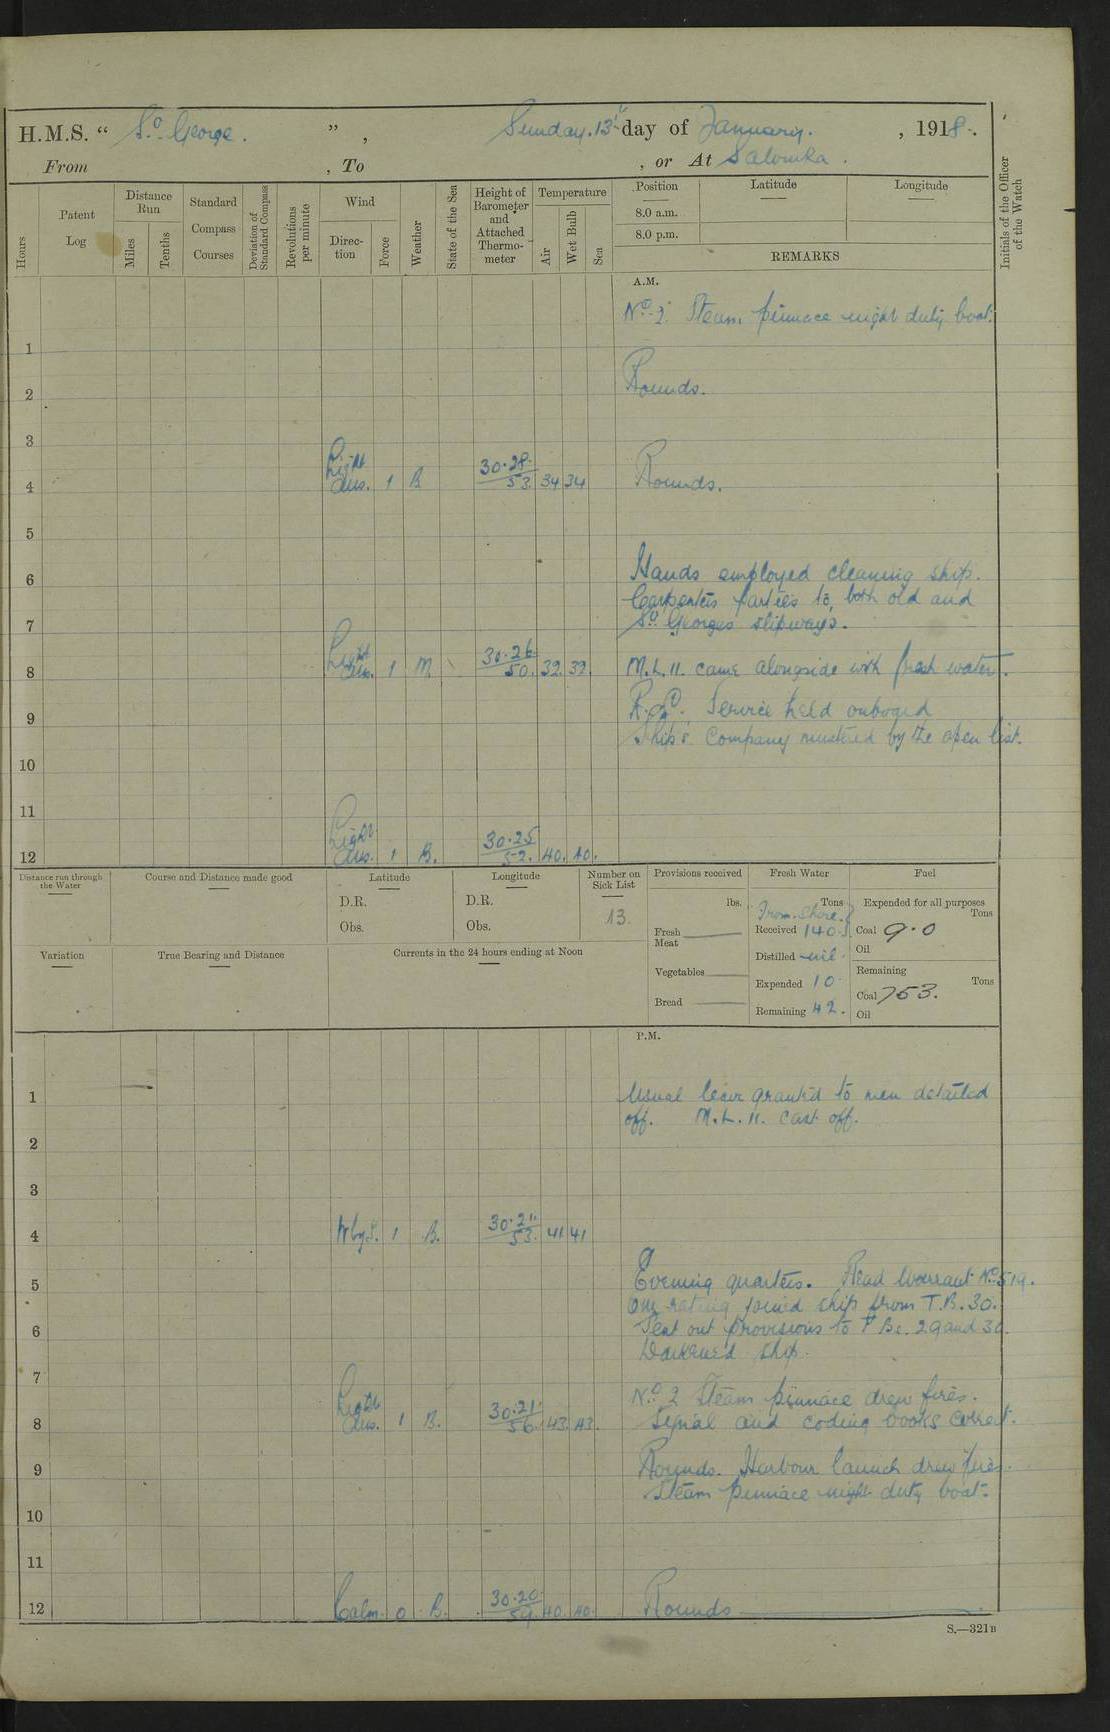 H.M.S. “ St George. ” , Sunday. 13th day of January. , 1918.
From , To , or At Salonika.
Hours
Patent Log
Distance Run
Miles
Tenths
Standard Compass Courses
Deviation of Standard Compass
Revolutions per minute
Wind
Direction
Force
Weather
State of the Sea
Height of Barometer and Attached Thermometer
Temperature
Air
Wet Bulb
Sea
Position
Latitude
Longitude
8.0 a.m.
8.0 p.m.
REMARKS
Initials of the Officer of the Watch
A.M.
No. 2. Steam pinnace night duty boat.
1
2 Rounds.
3
4 Light airs. 1 B 30.28 53 34 34 Rounds.
5
6 Hands employed cleaning ship.
Carpenters parties to, both old and
7 St Georges slipways.
8 Light airs. 1 M 30.26 50. 32 32 M.L. 11. came alongside with fresh water.
9 R.C. Service held onboard
Ship's Company mustered by the open list.
10
11
12 Light airs. 1 B. 30.25 52. 40. 40.
Distance run through the Water
Course and Distance made good
Latitude
D.R.
Obs.
Longitude
D.R.
Obs.
Number on Sick List
13.
Provisions received
lbs.
Fresh Meat
Vegetables
Bread
Fresh Water
Tons
From Shore.
Received 140.
Distilled nil.
Expended 10
Remaining 42.
Fuel
Expended for all purposes
Tons
Coal 9.0
Oil
Remaining
Tons
Coal 753.
Oil
Variation
True Bearing and Distance
Currents in the 24 hours ending at Noon
P.M.
1 Usual leave granted to men detailed
off. M.L. 11. cast off.
2
3
4 1 B. 30.21. 53. 41 41
5 Evening quarters. Read Warrant No 519.
One rating joined ship from T.B. 30.
6 Sent out provisions to T Bs. 29 and 30.
Darkened ship.
7 No 2 Steam pinnace drew fires.
8 Light airs. 1 B. 30.21. 56. 43. 43. Signal and coding books correct.
9 Rounds. Harbour launch drew fires.
Steam pinnace night duty boat.
10
11
12 Calm. 0 B. 30.20 59. 40. 40. Rounds
S.—321B